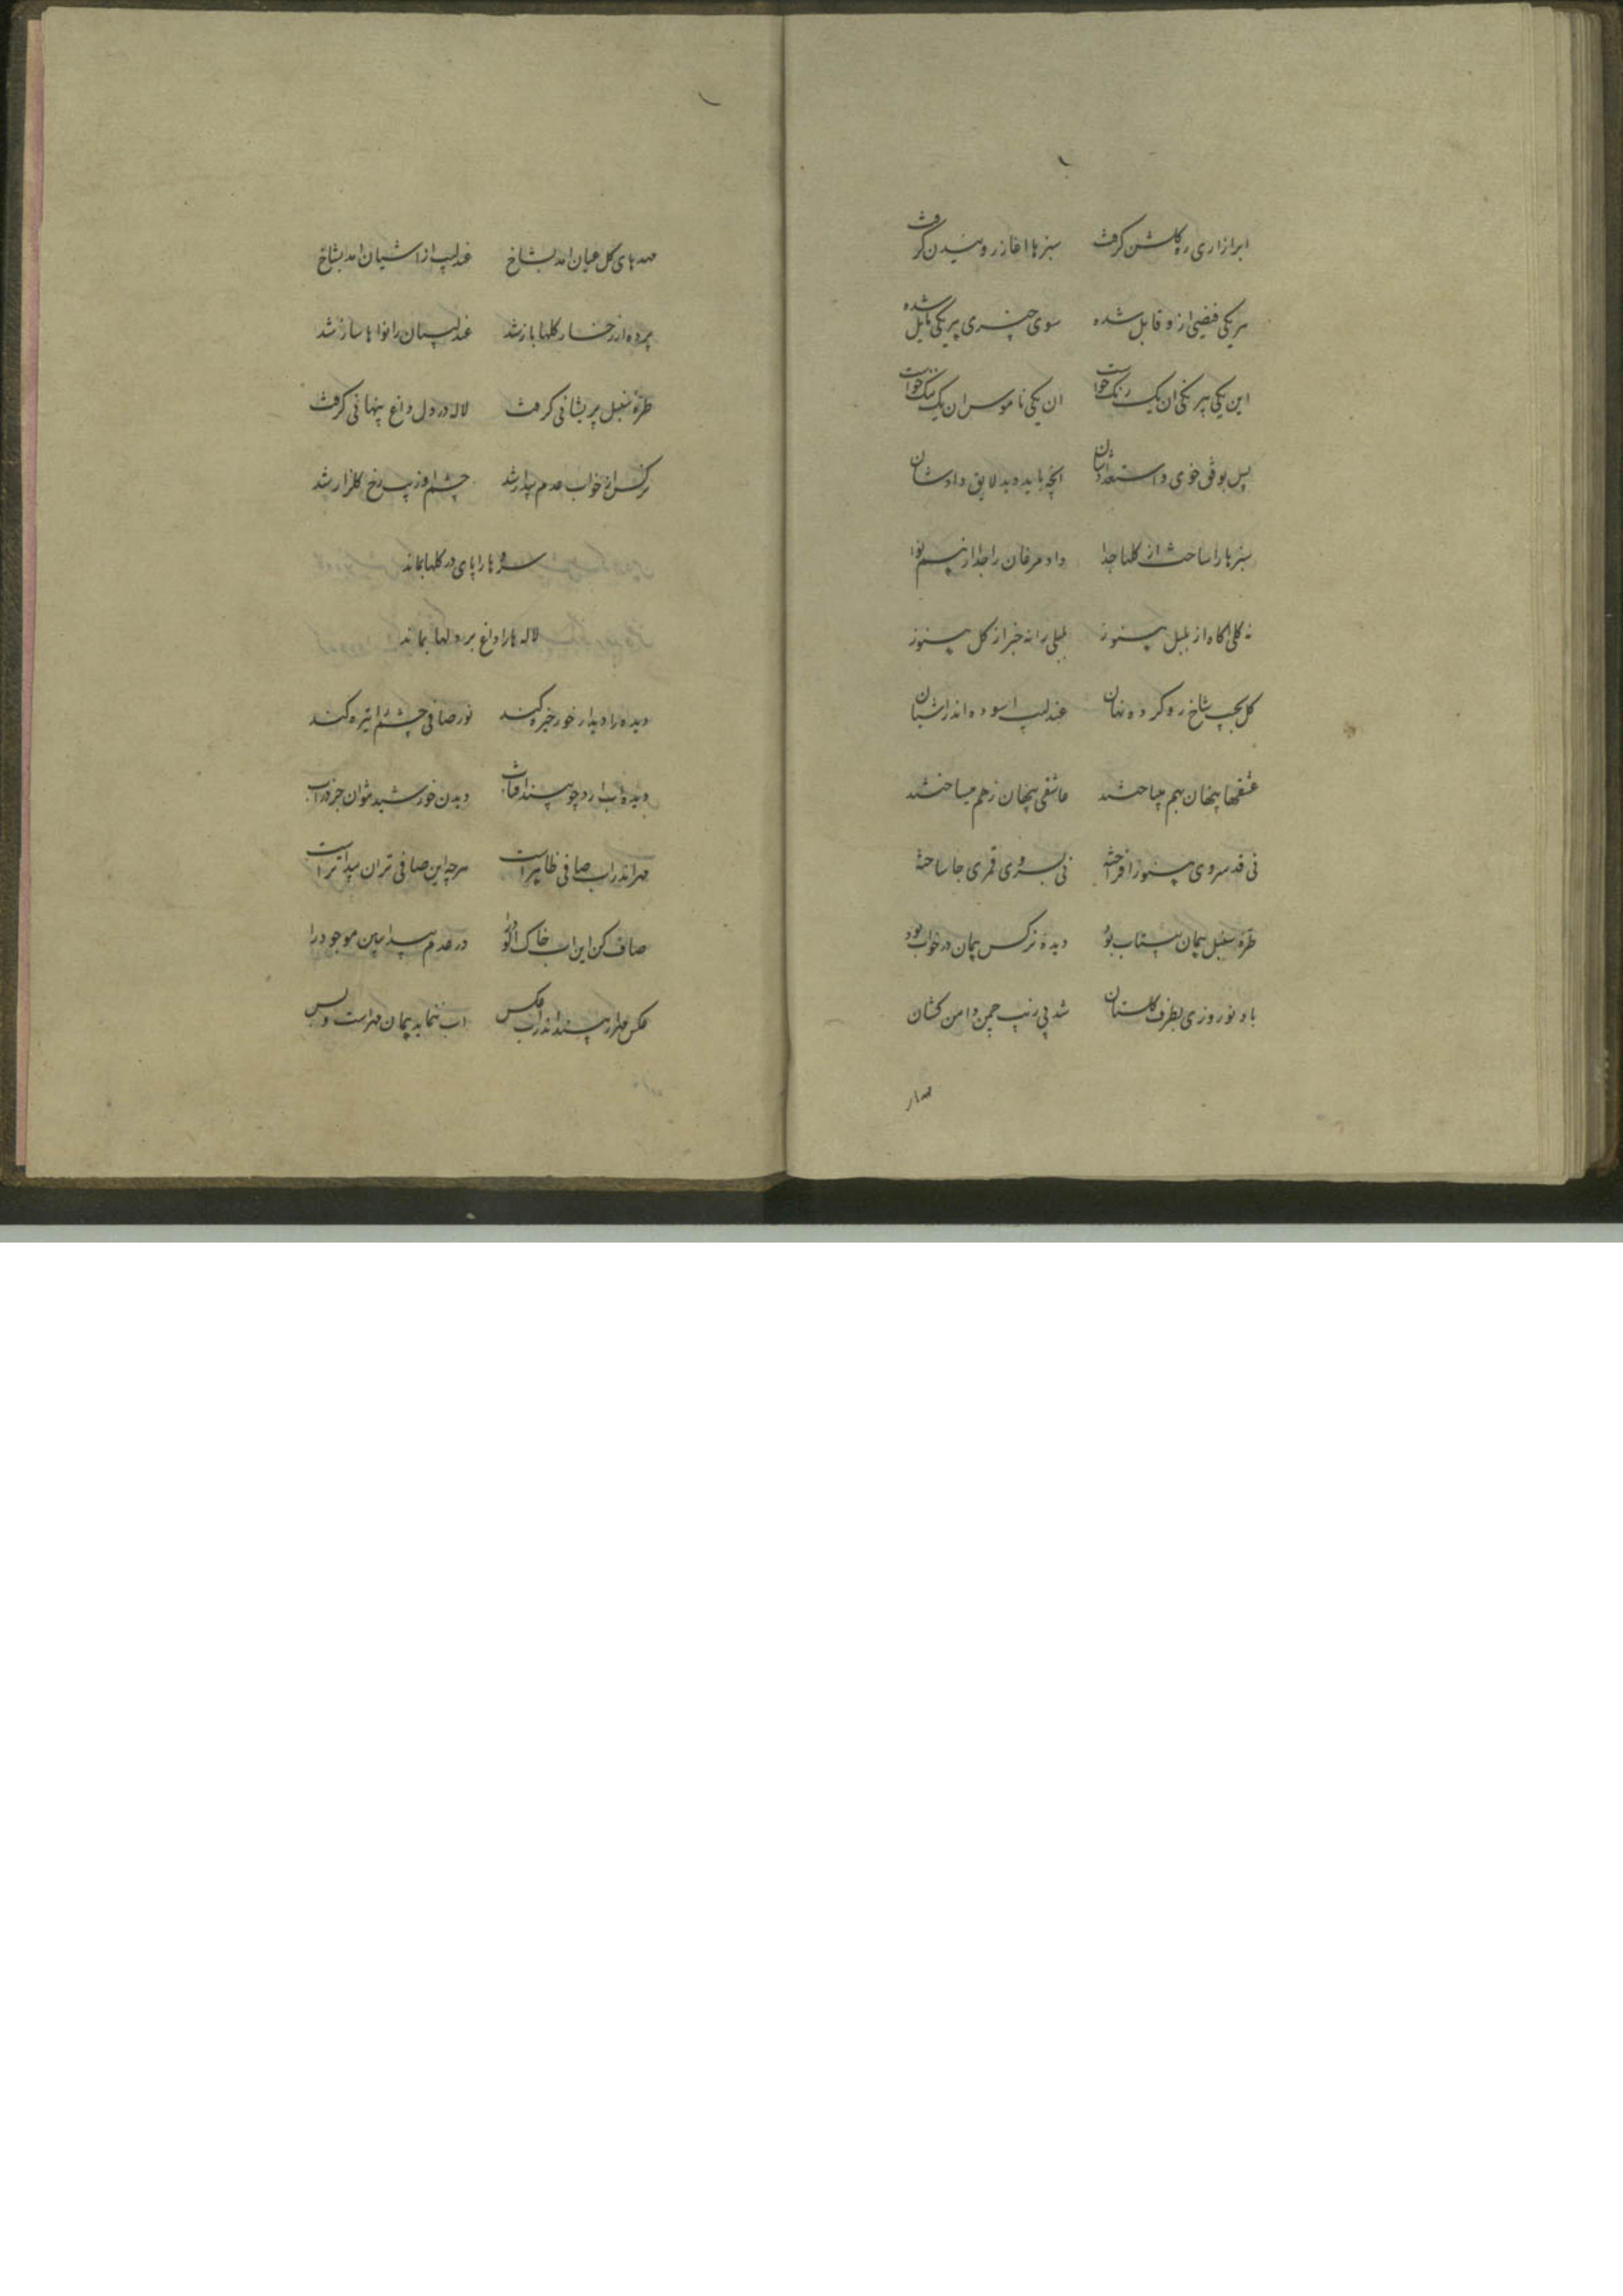 ابر ازاری ره گلشن گرفت سبزها اغاز روئیدن گرفت
هر یکی فیضی از و قابل شده سوی چیزی هر یکی مایل شده
این یکی بیرنگی ان یک رنگ خواست ان یکی ناموس ان یک ننگ خواست
پس بوفق خوی و استعدادشان انچه باید دید لایق دادشان
سبزها را ساخت از گلها جدا داد مرغان را جدا از هم نوا
نه گلی اگاه از بلبل هنوز بلبلی را نه خبر از گل هنوز
گل بجیب شاخ رو کرده نهان عندلیب اسوده اندر اشیان
عشقها پنهان بهم میباختند عاشقی پنهان ز هم میساختند
نی قد سروی هنوز افراخته نی بسروی قمری جا ساخته
طره سنبل همان بیتاب بود دیده نرگس همان در خواب بود
باد نوروزی بطرف گلستان شد پی زیب چمن دامن کشان
مهدهای گل عیان امد بشاخ عندلیب از اشیان امد بشاخ
پرده از رخسار گلها باز شد عندلیبان را نواها ساز شد
طره سنبل پریشانی گرفت لاله در دل داغ پنهانی گرفت
نرگس از خواب عدم بیدار شد چشم او زیب رخ گلزار شد
سروها را پای در گلها بماند
لاله ها را داغ بر دلها بماند
دیده را دیدار خور خیره کند نور صافی چشم را تیره کند
دیده اب ارد چو بیند افتاب دیدن خورشید نتوان جز در اب
مهر اندر اب صافی ظاهر است هرچه این صافی تر ان پیداتر است
صاف کن این اب خاک الود را در عدم پیدا ببین موجود را
عکس مهر ار بیند اندر اب کس اب ننماید همان مهر است و بس